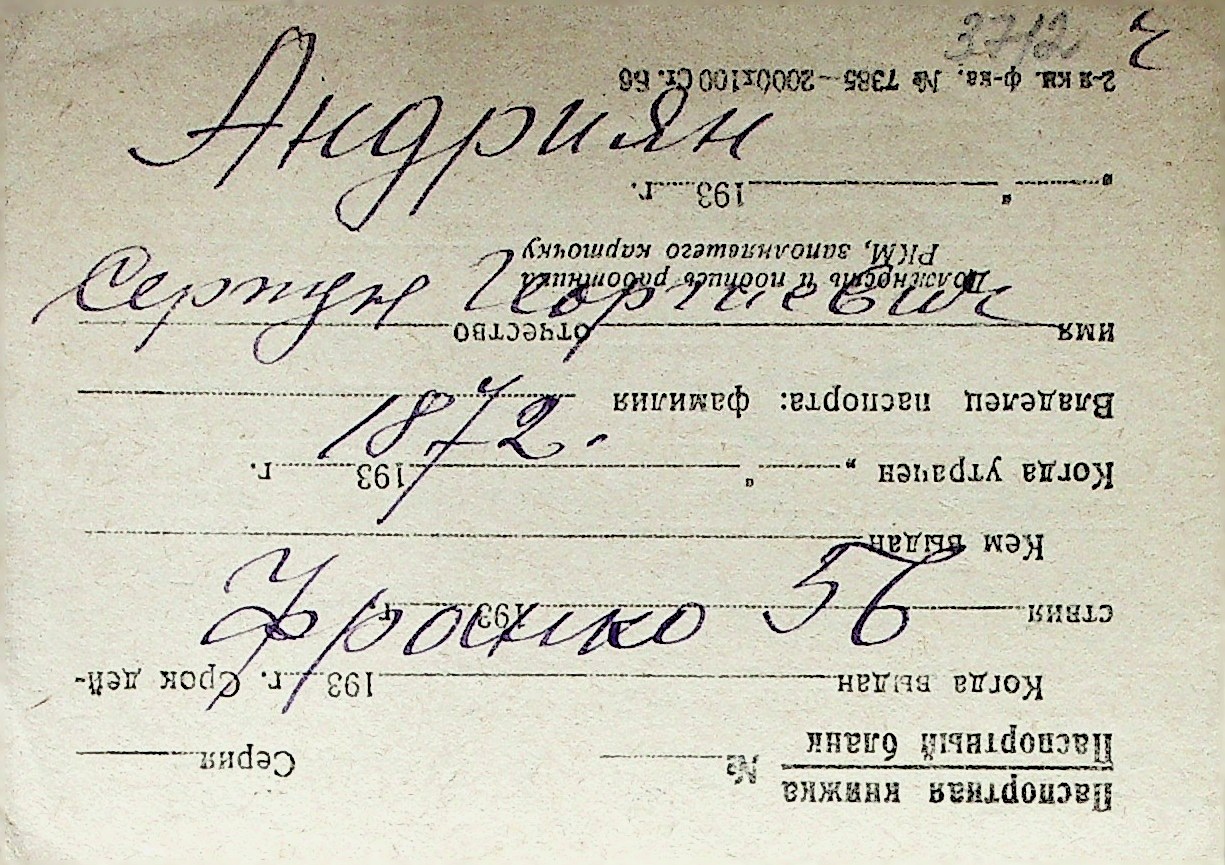 3712 ч
Андриян
Серпун Георгиевич
1872.
Франко 56
Паспортная книжка
Паспортный бланк № Серия
Когда выдан 193 г. Срок дей-
ствия 193 г.
Кем выдан
Когда утрачен „ “ 193 г.
Владелец паспорта: фамилия
имя отчество
Должность и подпись работника
РКМ, заполнявшего карточку
„ “ 193 г.
2-я кн. ф-ка, № 7385—2000х100 Ст. 66